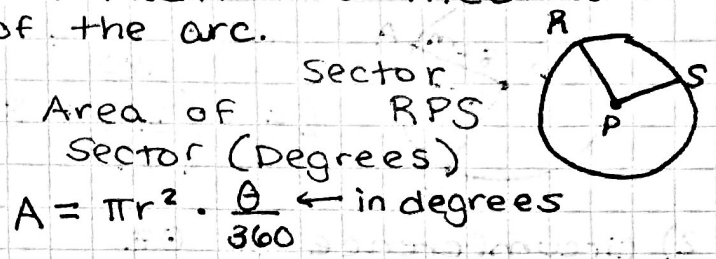 of the arc.
R
Sector
S
Area of RPS
P
Sector (Degrees)
A = πr² · θ/360 ← in degrees